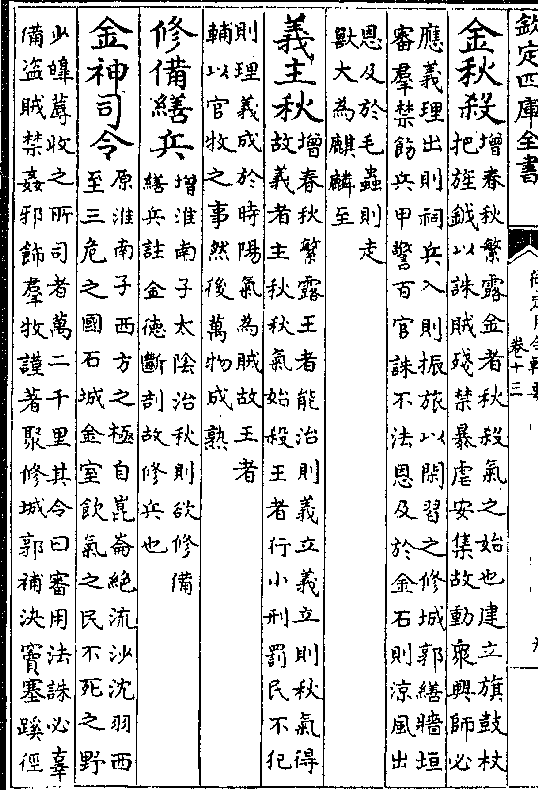 欽定四庫全書
卷十三
金秋殺
増春秋繁露金者秋殺氣之始也建立旗鼓杖
把旌鉞以誅賊殘禁暴虐安集故動衆興師必
應義理出則祠兵入則振旅以閑習之修城郭繕牆垣
審羣禁飭兵甲警百官誅不法恩及於金石則涼風出
恩及於毛蟲則走
獸大為麒麟至
義主秋
増春秋繁露王者能治則義立義立則秋氣得
故義者主秋秋氣始殺王者行小刑罰民不犯
則理義成於時陽氣為賊故王者
輔以官牧之事然後萬物成熟
修備繕兵
増淮南子太陰治秋則欲修備
繕兵註金德斷割故修兵也
金神司令
原淮南子西方之極自崑崙絶流沙沈羽西
至三危之國石城金室飲氣之民不死之野
少皡蓐收之所司者萬二千里其令曰審用法誅必辜
備盜賊禁姦邪飾羣牧謹著聚修城郭補決竇塞蹊徑